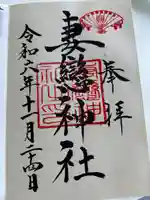 奉拝
妻戀神社
令和六年十一月二十四日